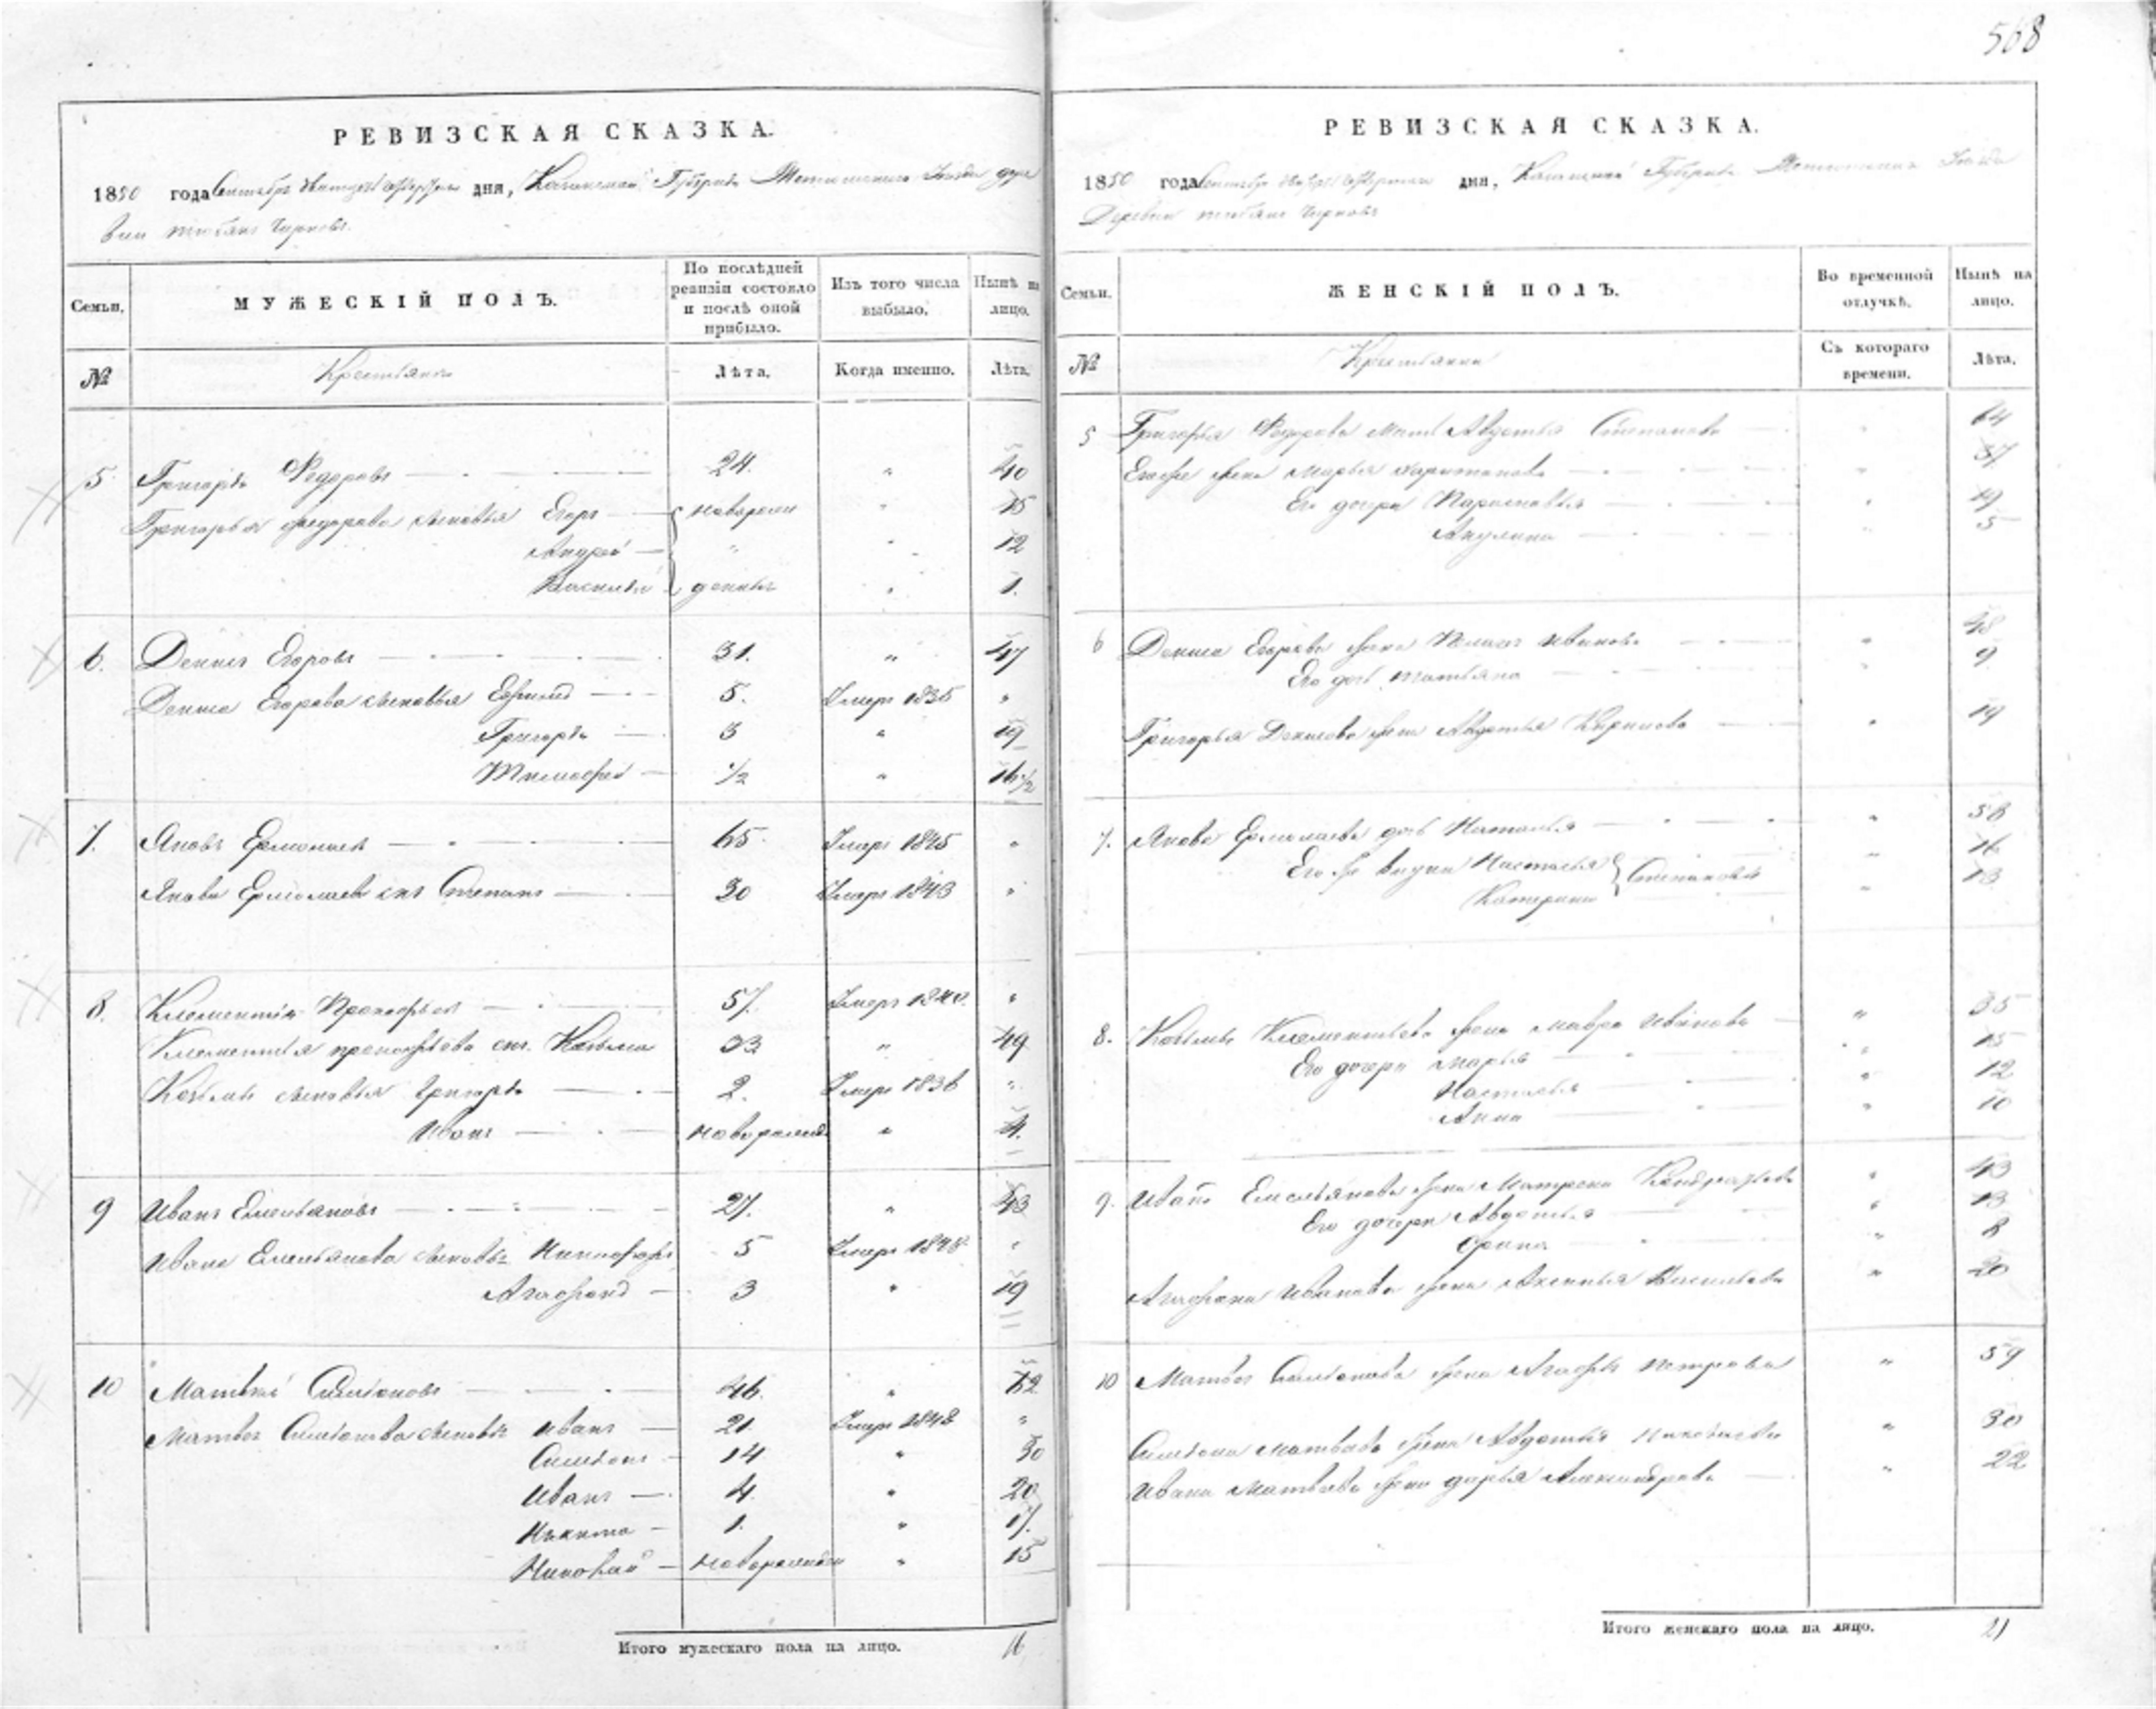 568
РЕВИЗСКАЯ СКАЗКА.
1850 года Сентября дня, Казанской Губернiи Уѣзда дере
вни Чирковъ.
Семьи. МУЖЕСКІЙ ПОЛЪ. По послѣдней ревизіи состояло и послѣ оной прибыло. Изъ того числа выбыло. Нынѣ на лицо.
№ Крестьяне Лѣта. Когда именно. Лѣта.
5 Григорiй Федоровъ 24. " 40
Григорья Федорова сыновья Егоръ новорож " 15
Андрей " " 12
Василiй денные " 1.
6. Денисъ Егоровъ 31. " 47
Дениса Егорова сыновья Ефимъ 5. Умеръ 1835 "
Григорiй 3 " 19
Тимофей 1/2 " 16 1/2
7. Яковъ Ермолаевъ 65 Умеръ 1845 "
Якова Ермолаева сынъ Степанъ 30 Умеръ 1843 "
8. Клементiй Прокофьевъ 57. Умеръ 1840. "
Клементья Прокофьева сынъ Козьма 33 " 49
Козьмы сыновья Григорiй 2. Умеръ 1836 "
Иванъ новорожден " 4.
9 Иванъ Емельяновъ 27. " 43
Ивана Емельянова сыновья Никифоръ 5 Умеръ 1848 "
Агафонъ 3 " 19
10 Матвей Симѣоновъ 46. " 62
Матвея Симѣонова сыновья Иванъ 21. Умеръ 1848 "
Симѣонъ 14 " 30
Иванъ 4. " 20
Никита 1. " 17.
Николай новорожденный " 15
Итого мужескаго пола на лицо. 16
РЕВИЗСКАЯ СКАЗКА.
1850 года Сентября дня, Казанской Губернiи Уѣзда
Деревни Чирковъ
Семьи. ЖЕНСКІЙ ПОЛЪ. Во временной отлучкѣ. Нынѣ на лицо.
№ Крестьянки Съ котораго времени. Лѣта.
5 Григорья Федорова мать Авдотья Степанова " 64
Егоже жена Марья Харитонова " 37
Его дочери Парасковья " 19
Акулина " 5
6 Дениса Егорова жена Иванова " 48
Его дочь Татьяна " 9
Григорья Денисова жена Авдотья Кирилова " 19
7. Якова Ермолаева дочь Наталья " 38
Его же внуки Настасья Степановы " 16
Катерина " 13
8. Козьмы Клементьева жена Мавра Иванова " 35
Его дочери Марья " 15
Настасья " 12
Анна " 10
9. Ивана Емельянова жена Матрена Кондратьева " 43
Его дочери Авдотья " 13
Орина " 8
Агафона Иванова жена Аксинья Васильева " 20
10 Матвея Симѣонова жена Агафья Петрова " 59
Симѣона Матвѣева жена Авдотья " 30
Ивана Матвѣева жена Дарья Александрова " 22
Итого женскаго пола на лицо. 21